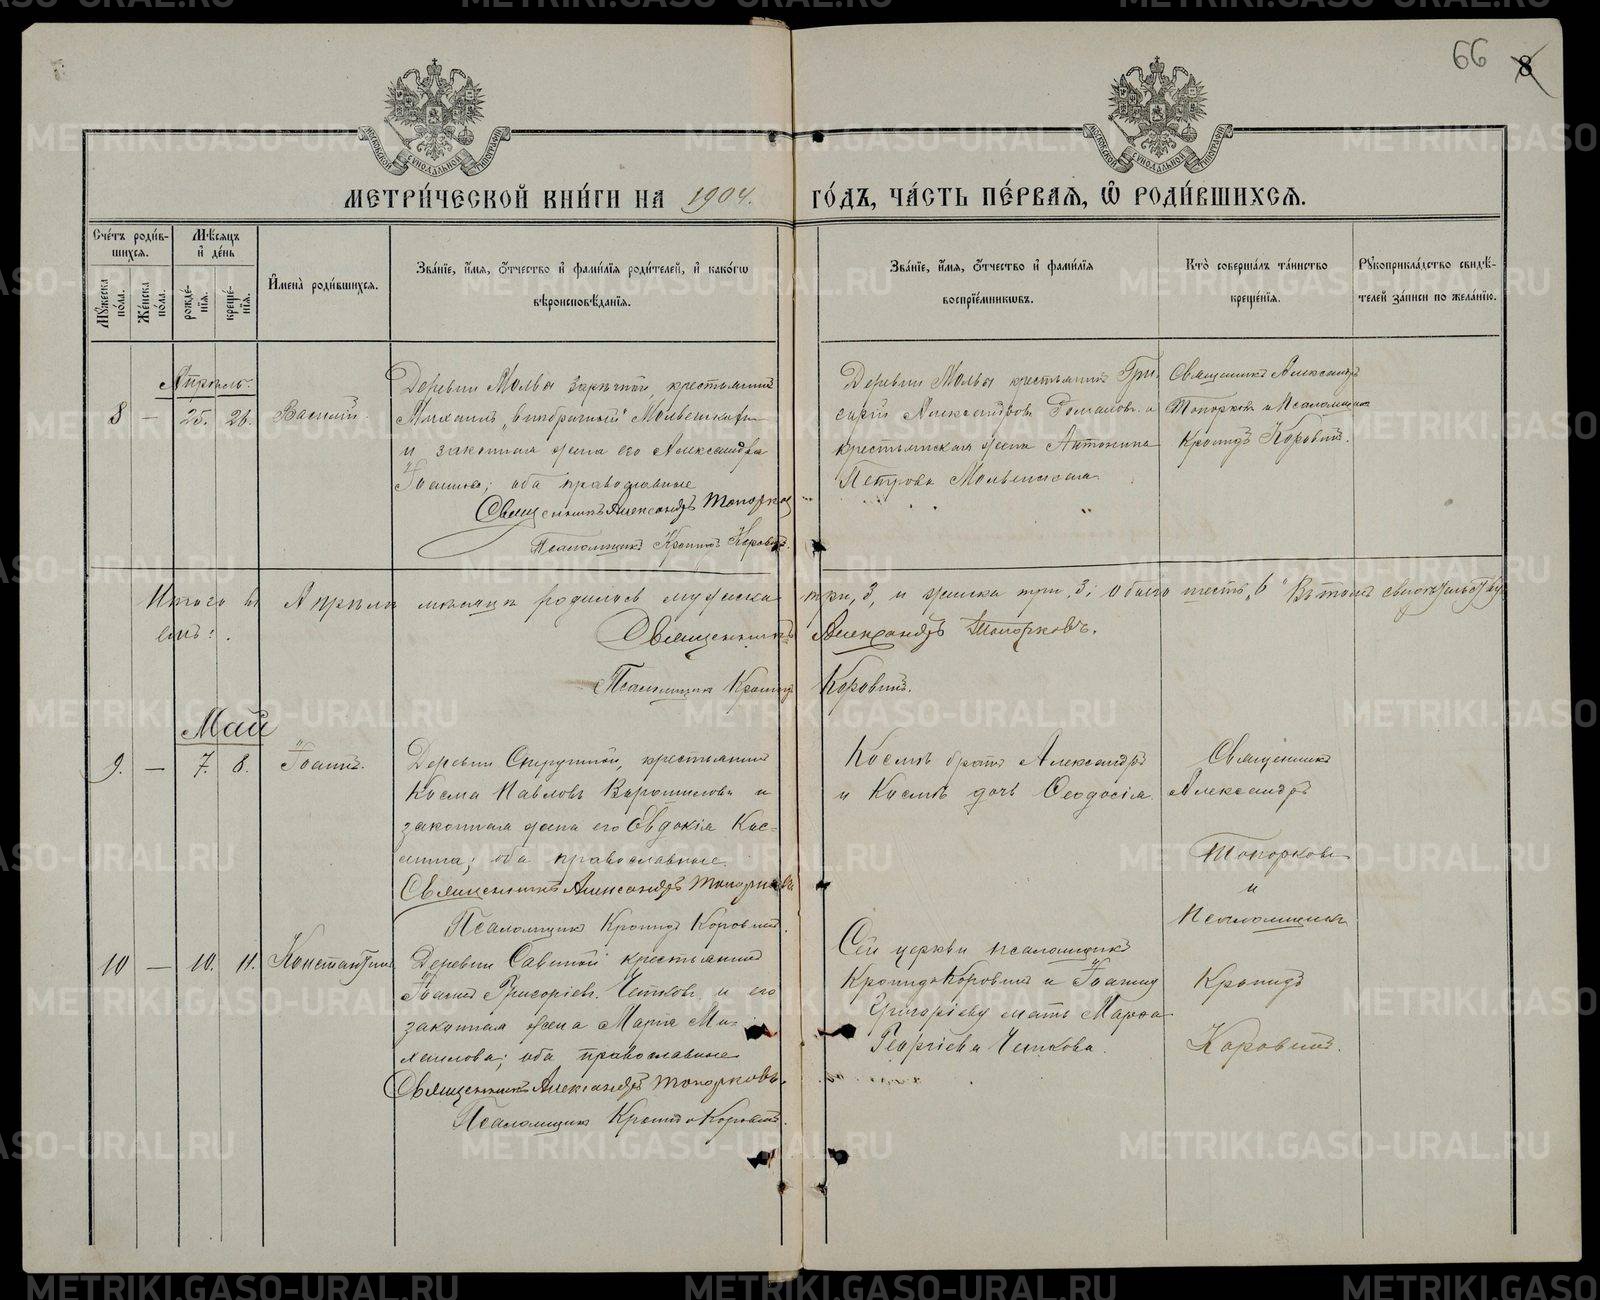 66 8
МЕТРИ́ЧЕСКОЙ КНИ́ГИ НА 1904. ГО́ДЪ, ЧА́СТЬ ПЕ́РВАЯ, Ѽ РОДИ́ВШИХСЯ.
Сче́тъ роди́в-
шихся.
Мѹ́жеска по́ла.
Же́нска по́ла.
Мѣ́сяцъ и де́нь
рожде́-
нїя.
креще́-
нїя.
Имена̀ роди́вшихся.
Зва́нїе, и́мя, ѻ́тчество и фами́лїя роди́телей, и како́гѡ
вѣроисповѣ́данїя.
Зва́нїе, и́мя, ѻ́тчество и фами́лїя
воспрїе́мникѡвъ.
Кто̀ соверша́лъ та́инство
креще́нїя.
Рѹкоприкла́дство свидѣ́-
телей за́писи по жела́нїю.
Апрѣль.
8 — 25. 26. Василій.
Деревни Молвы Зарѣчной, крестьянинъ
Михаилъ
и законная жена его Александра
Іоанна; оба православные
Священникъ Александръ Топорков
Псаломщикъ Кронидъ Коровинъ.
Деревни Молвы крестьянинъ Гри-
горій Александровъ и
крестьянская жена Антонина
Петрова
Священникъ Александръ
Топорковъ и Псаломщикъ
Кронидъ Коровинъ.
Итого въ Апрѣлѣ мѣсяцѣ родилось мужеска три, 3, и женска три, 3; обоего шесть, 6" Въ томъ свидѣтельству-
емъ:
Священникъ Александръ Топорковъ.
Псаломщикъ Кронидъ Коровинъ.
Май
9. — 7. 8. Іоаннъ.
Деревни крестьянинъ
Косма Павловъ Ворошиловъ и
законная жена его Евдокія Кос-
мина; оба православные.
Священникъ Александръ Топорковъ
Псаломщикъ Кронидъ Коровинъ.
Космы братъ Александръ
и Космы дочь Ѳеодосія.
Священникъ
Александръ
Топорковъ
и
Псаломщикъ
Кронидъ
Коровинъ.
10 — 10. 11. Константинъ
Деревни Савиной крестьянинъ
Іоаннъ Григоріевъ Четковъ и его
законная жена Марія Ми-
хаилова; оба православные
Священникъ Александръ Топорковъ.
Псаломщикъ Кронидъ Коровинъ.
Сей церкви псаломщикъ
Кронидъ Коровинъ и Іоанну
Григоріеву мать Марѳа
Георгіева Четкова.
METRIKI.GASO-URAL.RU